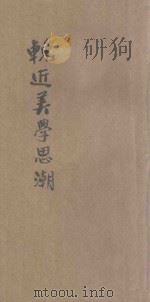 研狗
輓近美學思潮
mtoou.info